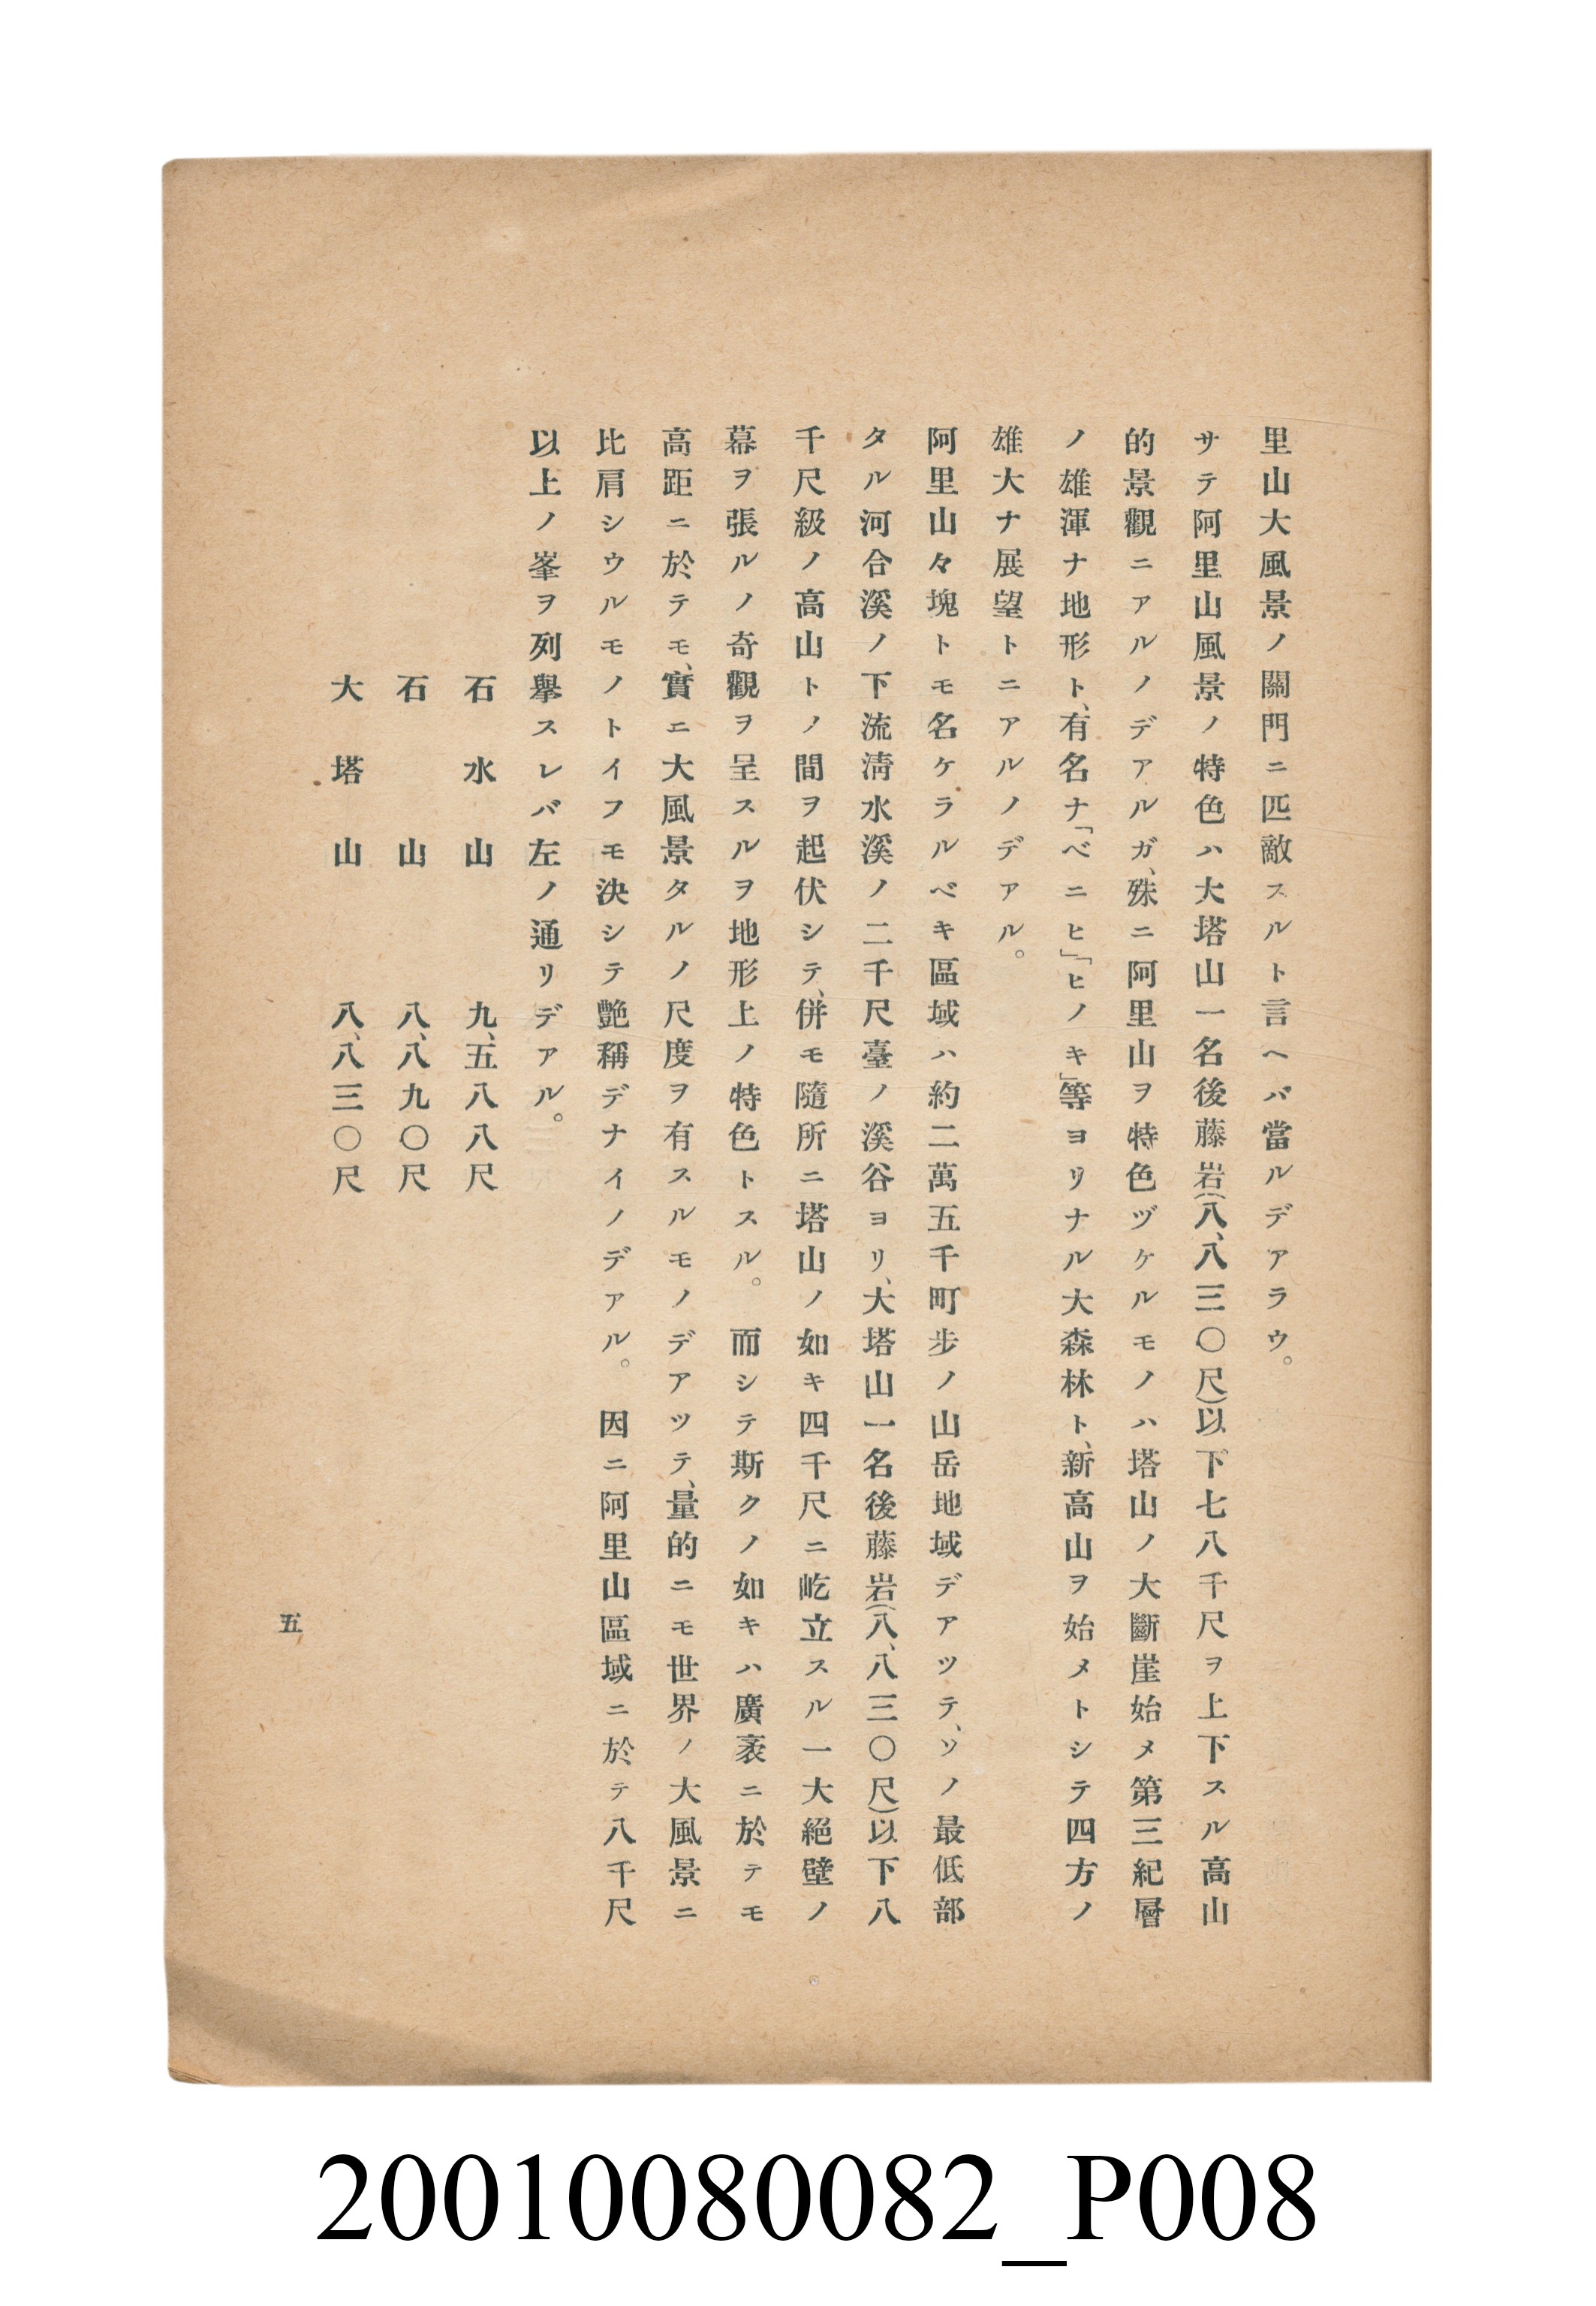 里山大風景ノ關門ニ匹敵スルト言ヘバ當ルデアラウ。
サテ阿里山風景ノ特色ハ大塔山一名後藤岩(八、八三〇尺)以下七八千尺ヲ上下スル高山
的景觀ニアルノデアルガ、殊ニ阿里山ヲ特色ヅケルモノハ塔山ノ大斷崖始メ第三紀層
ノ雄渾ナ地形ト、有名ナ「ベニヒ」「ヒノキ」等ヨリナル大森林ト、新高山ヲ始メトシテ四方ノ
雄大ナ展望トニアルノデアル。
阿里山々塊トモ名ケラルベキ區域ハ約二萬五千町步ノ山岳地域デアツテ、ソノ最低部
タル河合溪ノ下流淸水溪ノ二千尺臺ノ溪谷ヨリ、大塔山一名後藤岩(八、八三〇尺)以下八
千尺級ノ高山トノ間ヲ起伏シテ、併モ隨所ニ塔山ノ如キ四千尺ニ屹立スル一大絕壁ノ
幕ヲ張ルノ奇觀ヲ呈スルヲ地形上ノ特色トスル。而シテ斯クノ如キハ廣袤ニ於テモ
高距ニ於テモ、實ニ大風景タルノ尺度ヲ有スルモノデアツテ、量的ニモ世界ノ大風景ニ
比肩シウルモノトイフモ決シテ艶稱デナイノデアル。因ニ阿里山區域ニ於テ八千尺
以上ノ峯ヲ列擧スレバ左ノ通リデアル。
石水山 九、五八八尺
石山 八、八九〇尺
大塔山 八、八三〇尺
五
20010080082_P008